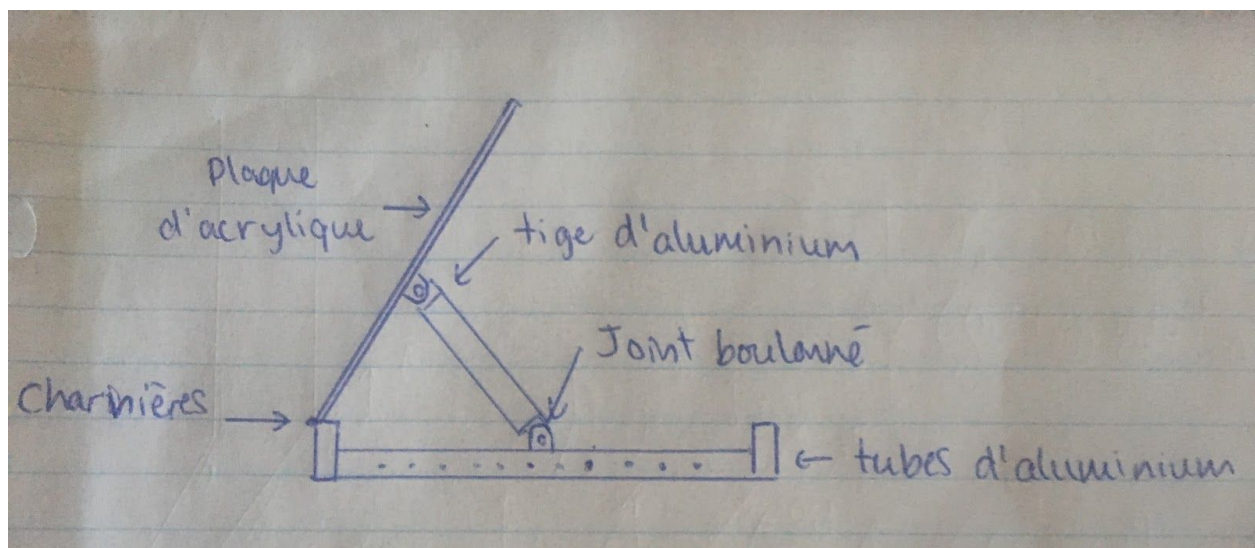 Plaque
d'acrylique
tige d'aluminium
Joint boulonné
Charnières
tubes d'aluminium